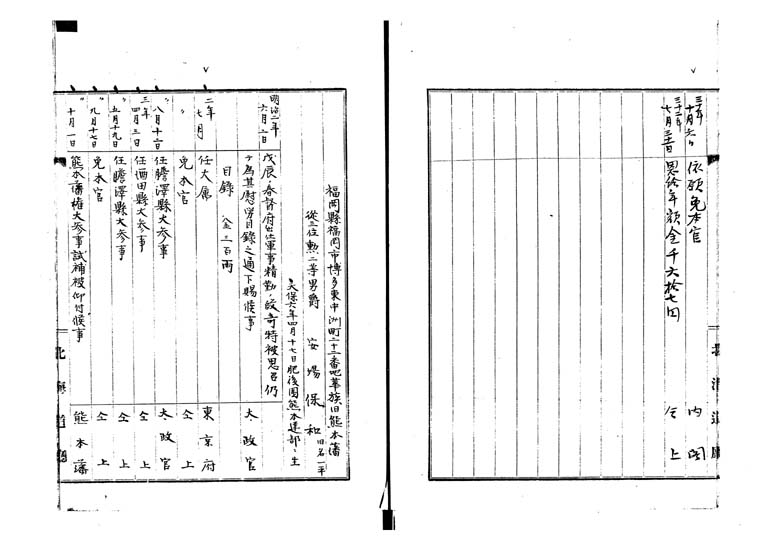 三十年十月六日 依願免本官 内閣
三十二年七月三十一日 恩給年額金千六拾七円 仝上
福岡縣福岡市博多東中洲町二十二番地華族旧熊本藩
従三位勲二等男爵 安場保和 旧名一平
天保六年四月十七日肥後国熊本建部ニ生
明治二年六月二日 戊辰ノ春督府出仕軍事精勤ノ段奇特被思召仍
テ為其慰労目録之通下賜候事 太政官
目録 金三百両
二年七月 任大属 東京府
〃 免本官 仝上
〃 八月十二日 任膽澤縣大参事 太政官
三年四月三日 任酒田縣大参事 仝上
〃 五月十九日 任膽澤縣大参事 仝上
〃 九月十七日 免本官 仝上
〃 十月一日 熊本藩権大参事試補被仰付候事 熊本藩
北海道廳